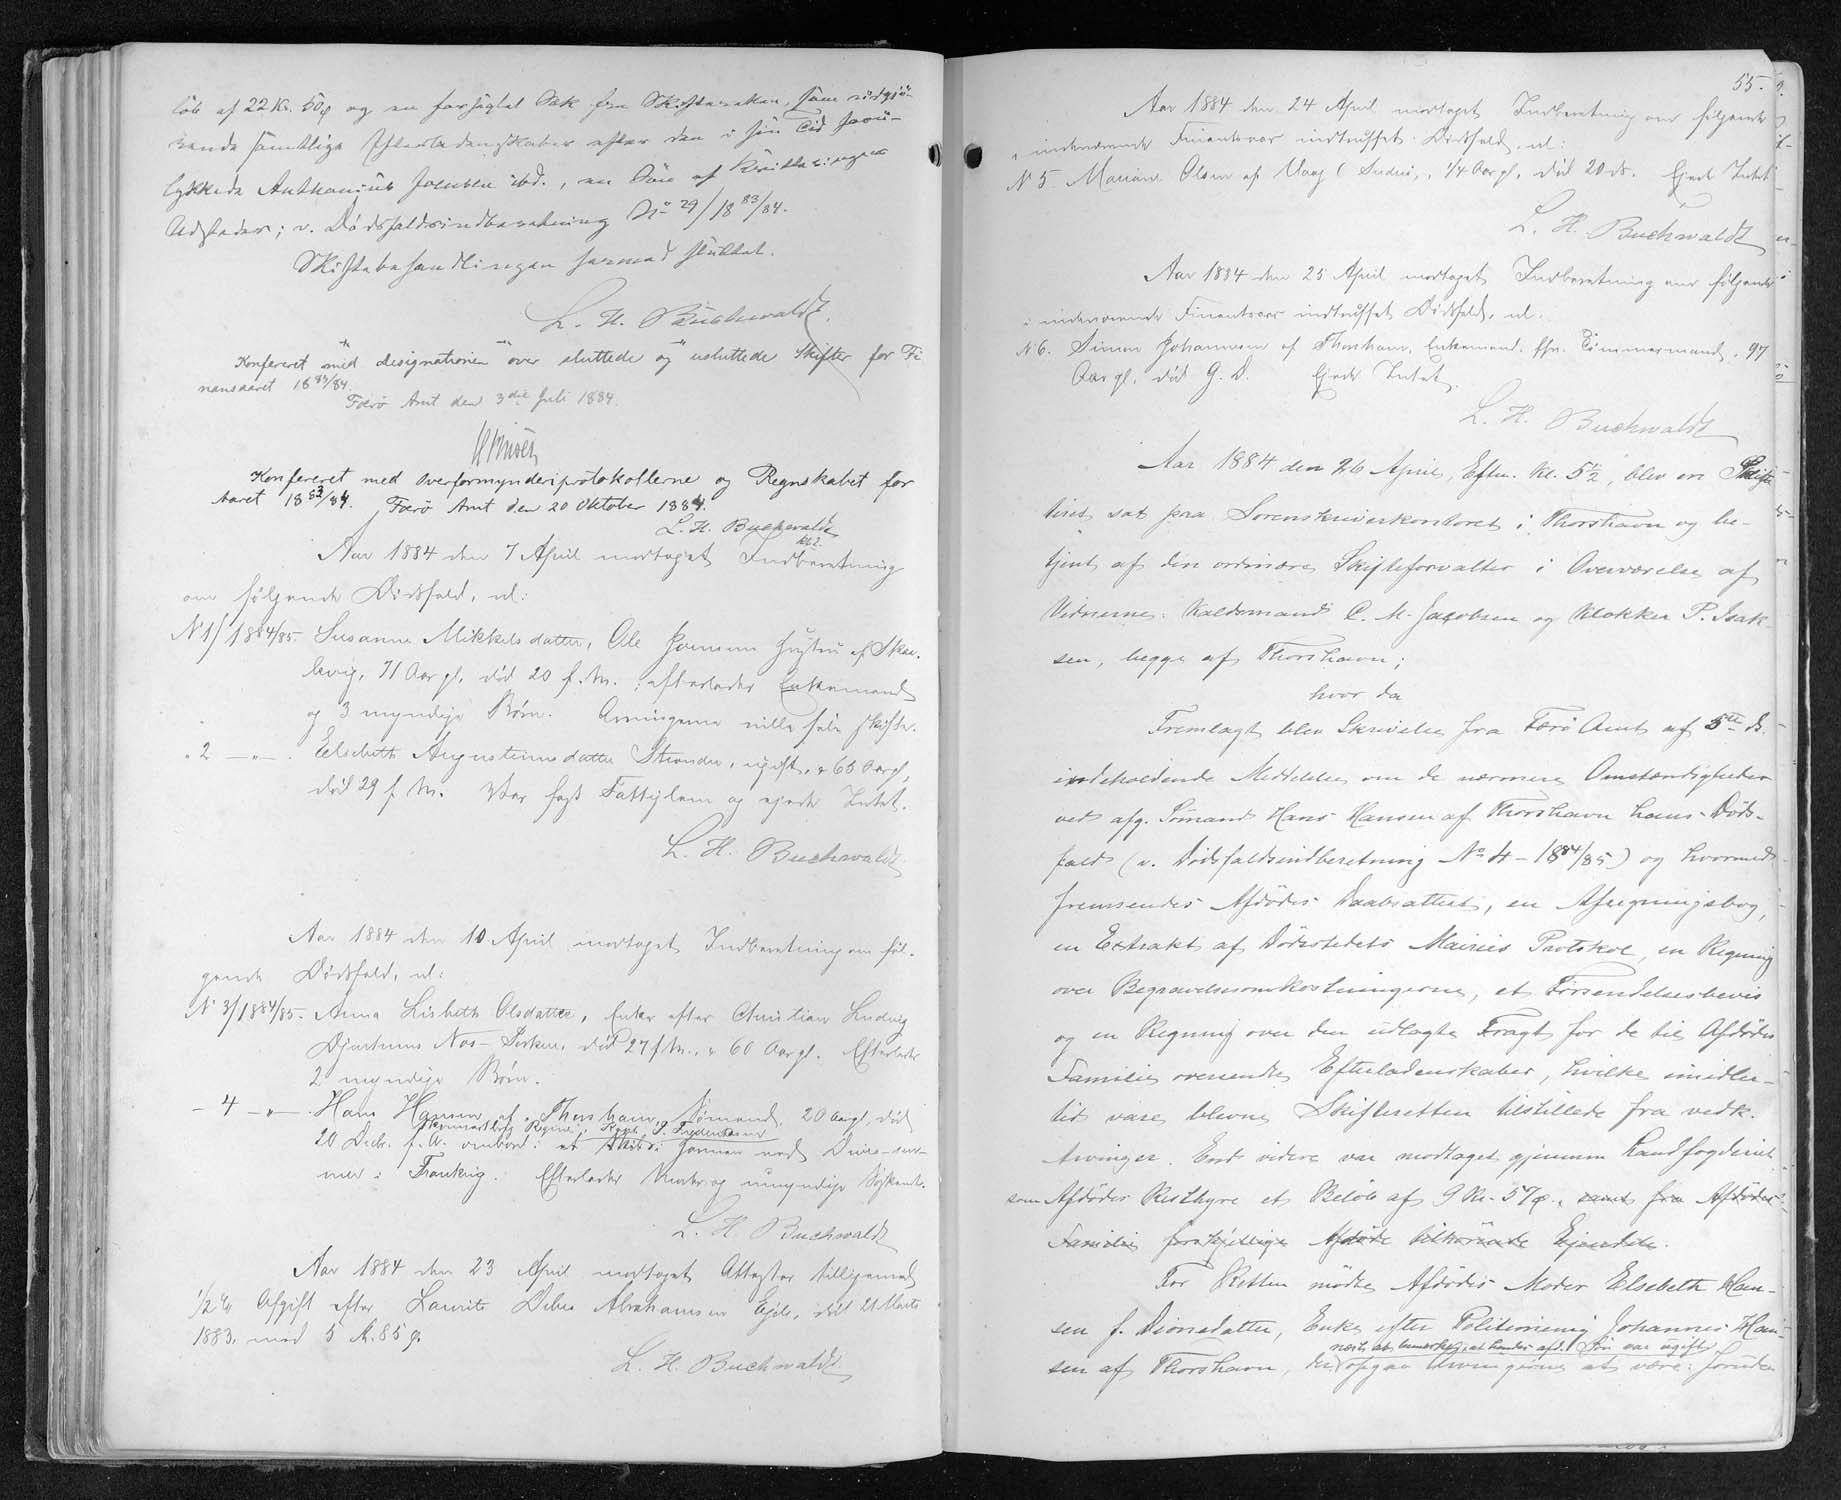 løb af 22 Kr. 50 ø og en forseglet Sæk fra Skifteretten, som
samtlige Efterladenskaber efter den i sin Tid
lykkede Anthonius Joensen ibd., en Søn af Kvitteringens
Udsteder; v. Dødsfaldsindberetning No 29/18 83/84.
Skiftebehandlingen hermed sluttet.
L. H. Buchwaldt.
Konfereret med designationen over sluttede og usluttede Skifter for Fi
nansaaret 18 83/84.
Færø Amt den 3die Juli 1884.
Konfereret med Overformynderiprotokollerne og Regnskabet for
Aaret 18 83/84. Færø Amt den 20 Oktober 1884.
L. H. Buchwaldt
kst.
Aar 1884 den 7 April modtaget Indberetning
om følgende Dødsfald, nl:
N 1/1884/85. Susanne Mikkelsdatter, Ole Joensens Hustru af Skaa-
levig, 71 Aar gl. død 20 f. M.; efterlader Enkemand
og 3 myndige Børn. Arvingerne ville selv skifte.
" 2 — " — . Elsebeth Augustinusdatter Strandre, ugift, " 65 Aar gl,
død 29 f. M. Var sagt Fattiglem og ejede Intet.
L. H. Buchwaldt.
Aar 1884 den 10 April modtaget Indberetning om føl-
gende Dødsfald, nl:
N 3/1884/85. Anna Lisbeth Olsdatter, Enke efter Christian Ludvig
Djurhuus Næs-Seskur. død 27 f. M., " 60 Aar gl. Efterlader
2 myndige Børn.
— 4 — " — Hans Hansen af Thorshavn, Sømand, 20 Aar gl, død
Skonnertbrig Regine, Kapt. P. Frydensberg
20 Decbr. f. A. ombord i et Skib i Havnen ved
i Frankrig. Efterlader Moder og umyndige Søskende.
L. H. Buchwaldt
Aar 1884 den 23 April modtaget Attester tilligemed
1/2 % Afgift efter Laurits Debes Abrahamsen Ejde, død 21 Marts
1883, med 5 Kr. 85 ø.
L. H. Buchwaldt
55.
Aar 1884 den 24 April modtaget Indberetning om følgende
i indeværende Finantsaar indtruffet Dødsfald, nl:
N 5. Mariane Olsen af Vaag (Suderø), 1/4 Aar gl, død 20 ds. Ejede Intet
L. H. Buchwaldt
Aar 1884 den 25 April modtaget Indberetning om følgende
i indeværende Finantsaar indtruffet Dødsfald, nl.
N 6. Simon Johannesen af Thorshavn, Enkemand, fhv. Tømmermand, 97
Aar gl, død 9. D. Ejede Intet.
L. H. Buchwaldt
Aar 1884 den 26 April, Eftm. Kl. 5½, blev en Skifte
Sorenskriverkontoret i Thorshavn og be-
tjent af den ordinære Skifteforvalter i Overværelse af
Vidnerne: Valdsmand C. M. Jacobsen og Klokker P. Isak-
sen, begge af Thorshavn;
hvor da
Fremlagt blev Skrivelse fra Færø Amt af 5te ds.
indeholdende Meddelelse om de nærmere Omstændigheder
ved afg. Sømand Hans Hansen af Thorshavn hans Døds-
fald (v. Dødsfaldsindberetning No 4 - 1884/85) og hvormed
fremsendes Afdødes Daabsattest, en Afregningsbog,
en Extrakt af Dødsstedets Mairies Protokol, en Regning
over Begravelsesomkostningerne, et Forsendelsesbevis
og en Regning over den udlagte Fragt for de til Afdødes
Familie oversendte Efterladenskaber, hvilke imidler-
tid vare blevne Skifteretten tilstillede fra vedk.
Arvinger. End videre var modtaget gjennem Landfogderiet
som Afdødes Resthyre et Beløb af 9 Kr. 57 ø., samt fra Afdødes
Familie forskjellige Afdøde tilhørende Ejendele.
For Retten mødte Afdødes Moder Elsebeth Han-
sen f. Dionsdatter, Enke efter Politibetjent Johannes Han-
næst at bemærke, at hendes afd. Søn var ugift
sen af Thorshavn, der opgav Arvingerne at være: foruden